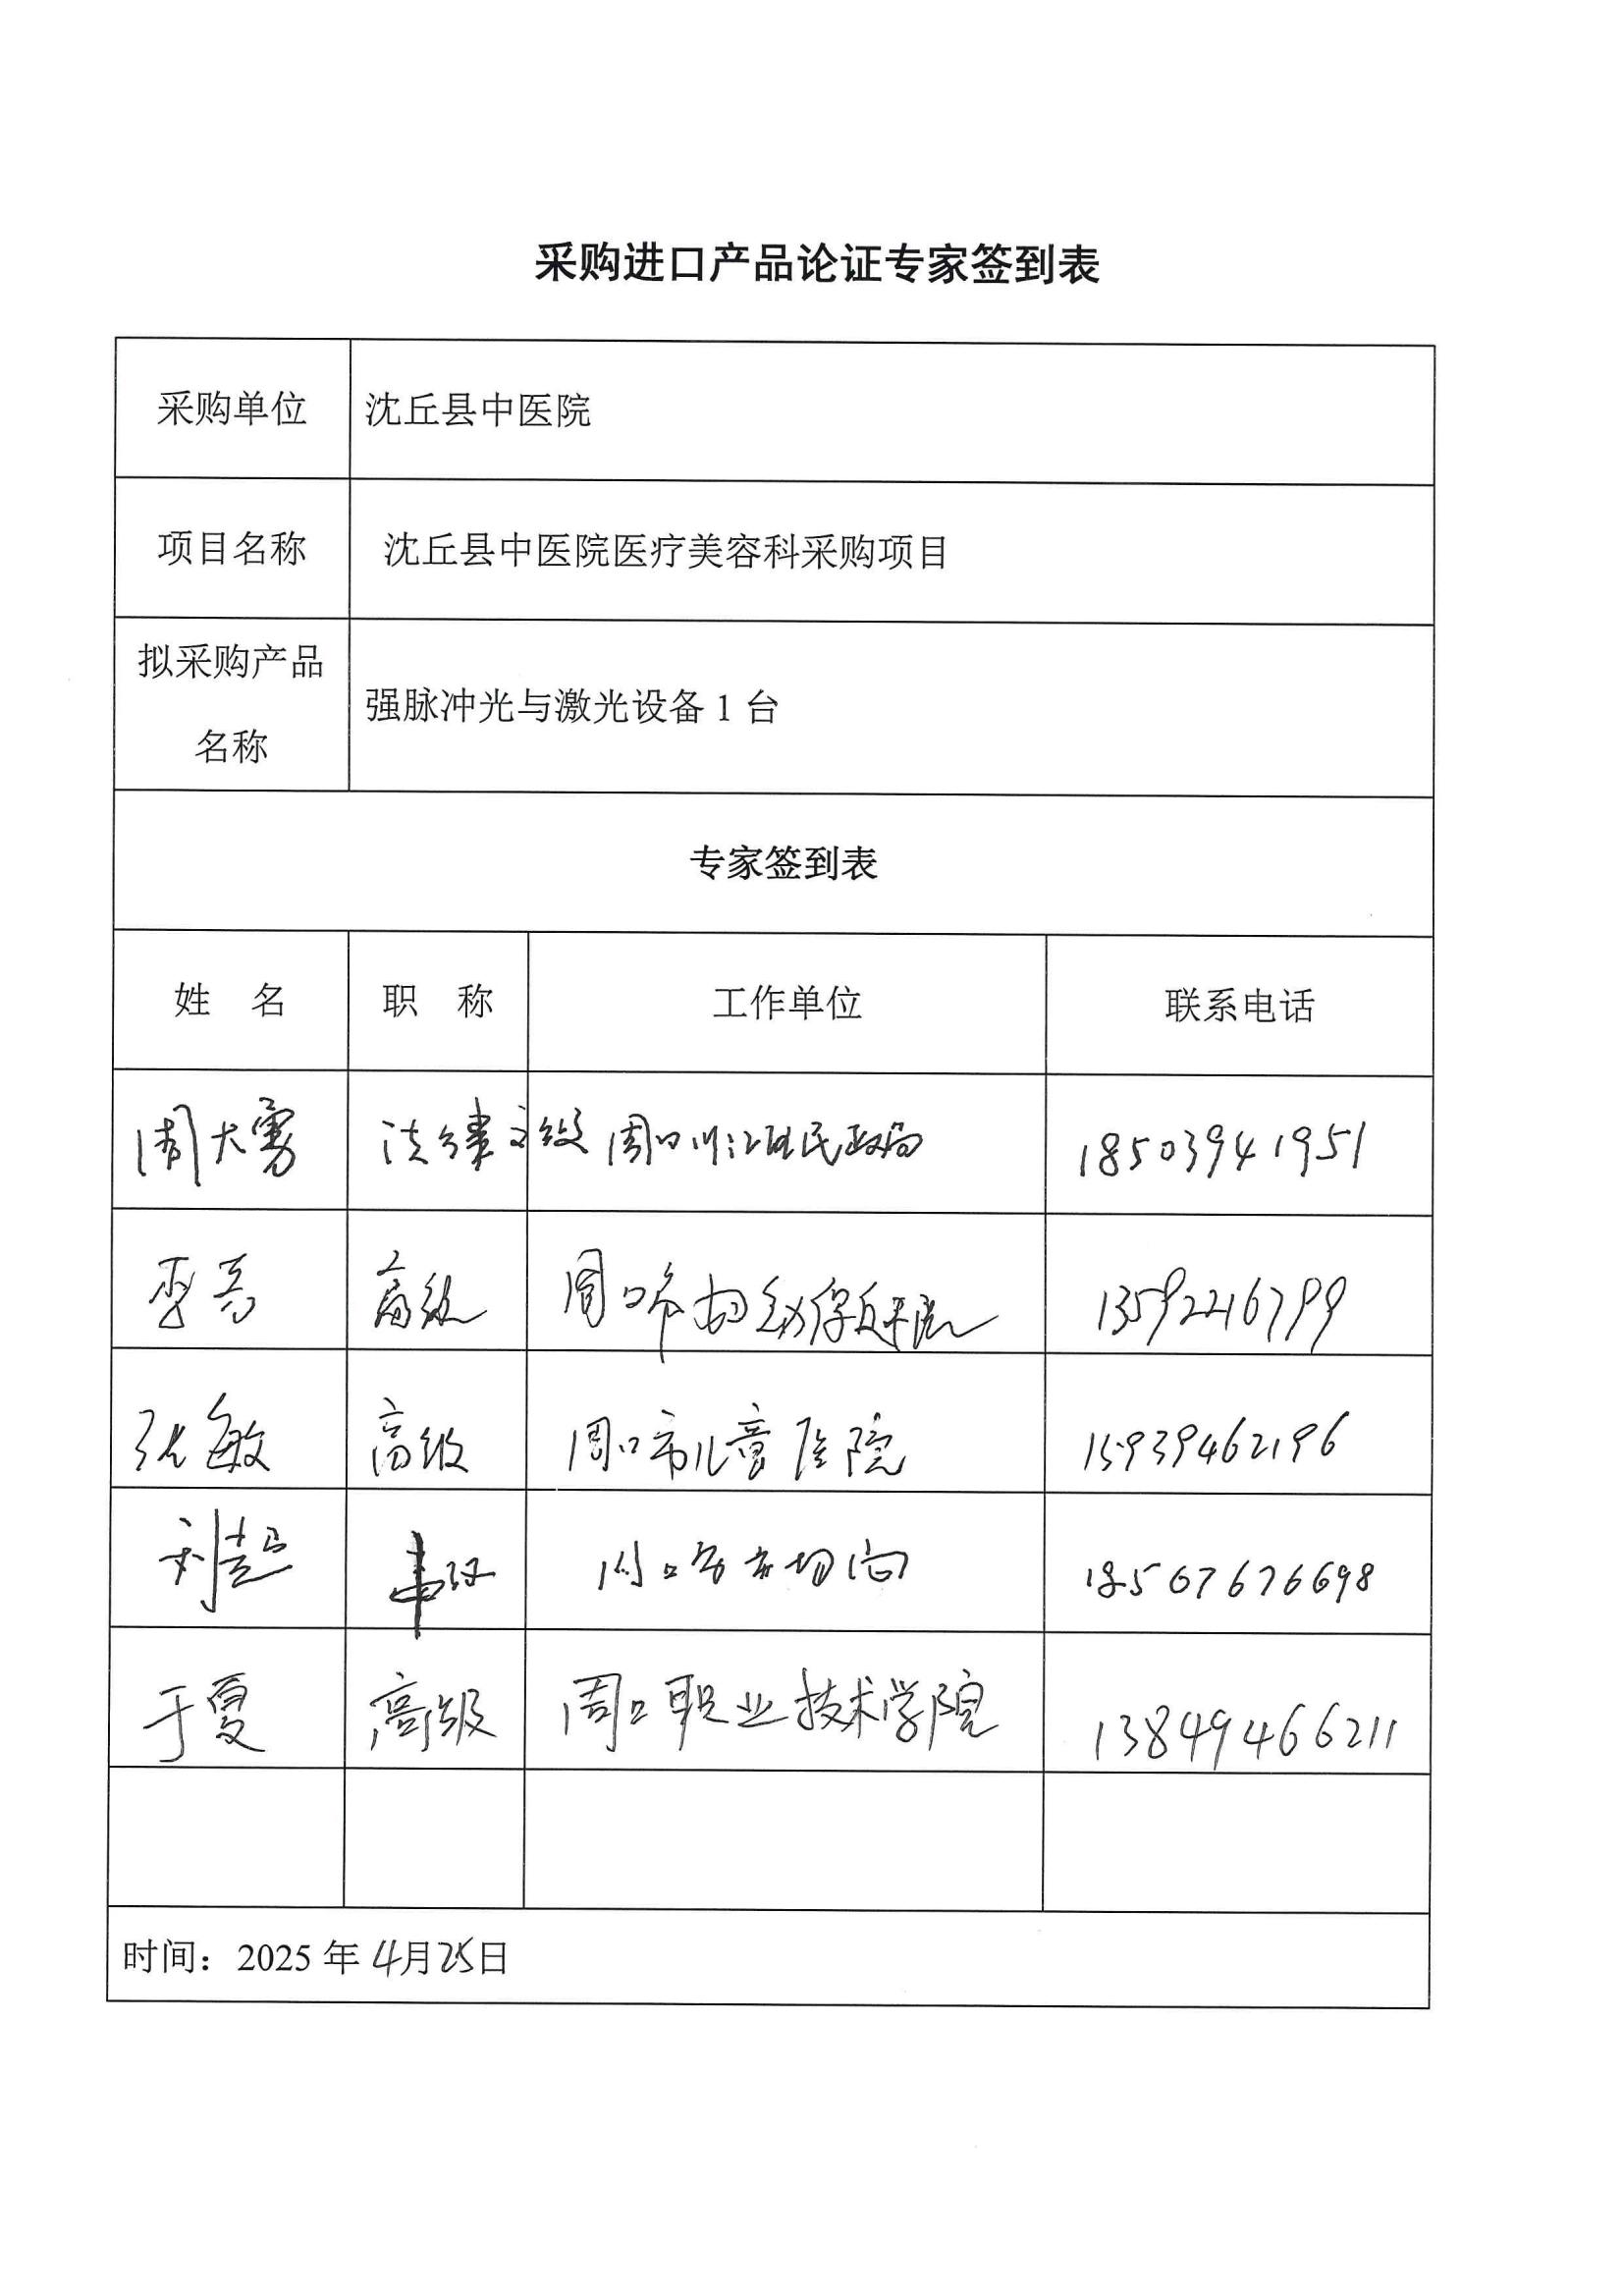 采购进口产品论证专家签到表
采购单位 沈丘县中医院
项目名称 沈丘县中医院医疗美容科采购项目
拟采购产品名称 强脉冲光与激光设备 1 台
专家签到表
姓 名 职 称 工作单位 联系电话
周大勇 法律 周口川汇区民政局 18503941951
李亮 高级 周口市妇幼保 院 13592216799
张敏 高级 周口市儿童医院 15939462196
刘超 周口市 18567676698
于夏 高级 周口职业技术学院 13849466211
时间：2025 年 4月25日